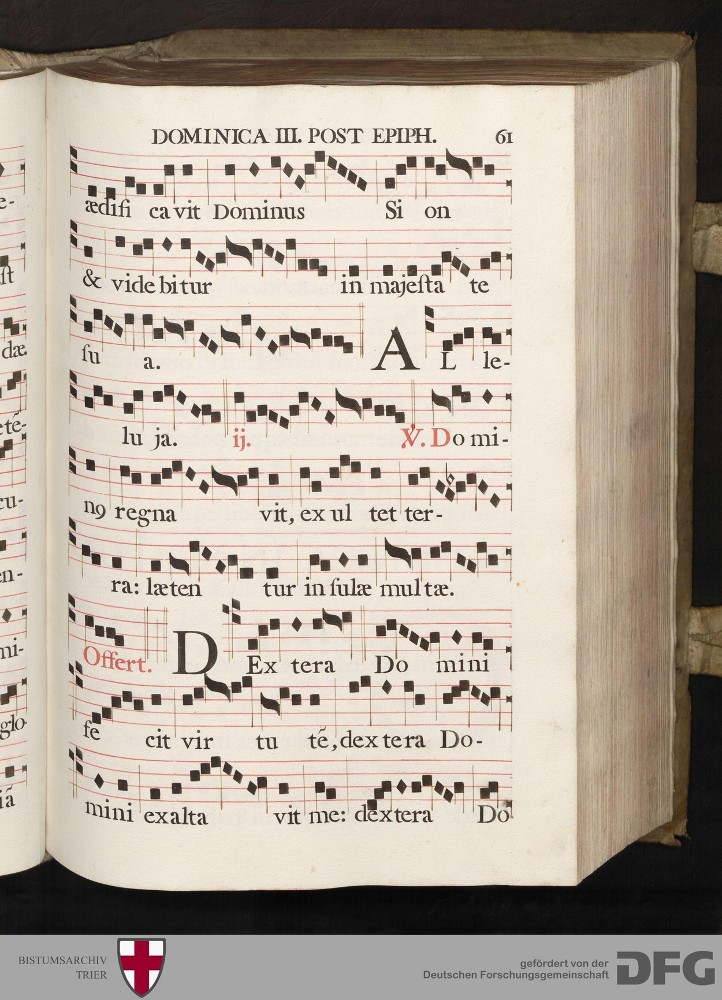 DOMINICA III. POST EPIPH. 61
ædifi cavit Dominus Si on
& videbitur in majesta te
su a. AL le-
lu ja. ij. ℣. Domi-
nꝰ regna vit, ex ul tet ter-
ra: læten tur in sulæ multæ.
Offert. DEx tera Do mini
fe cit vir tu tẽ, dextera Do-
mini exalta vit me: dextera Do
e-
st
dæ
te-
cu-
en-
mi-
glo-
iã
BISTUMSARCHIV
TRIER
gefördert von der
Deutschen Forschungsgemeinschaft
DFG